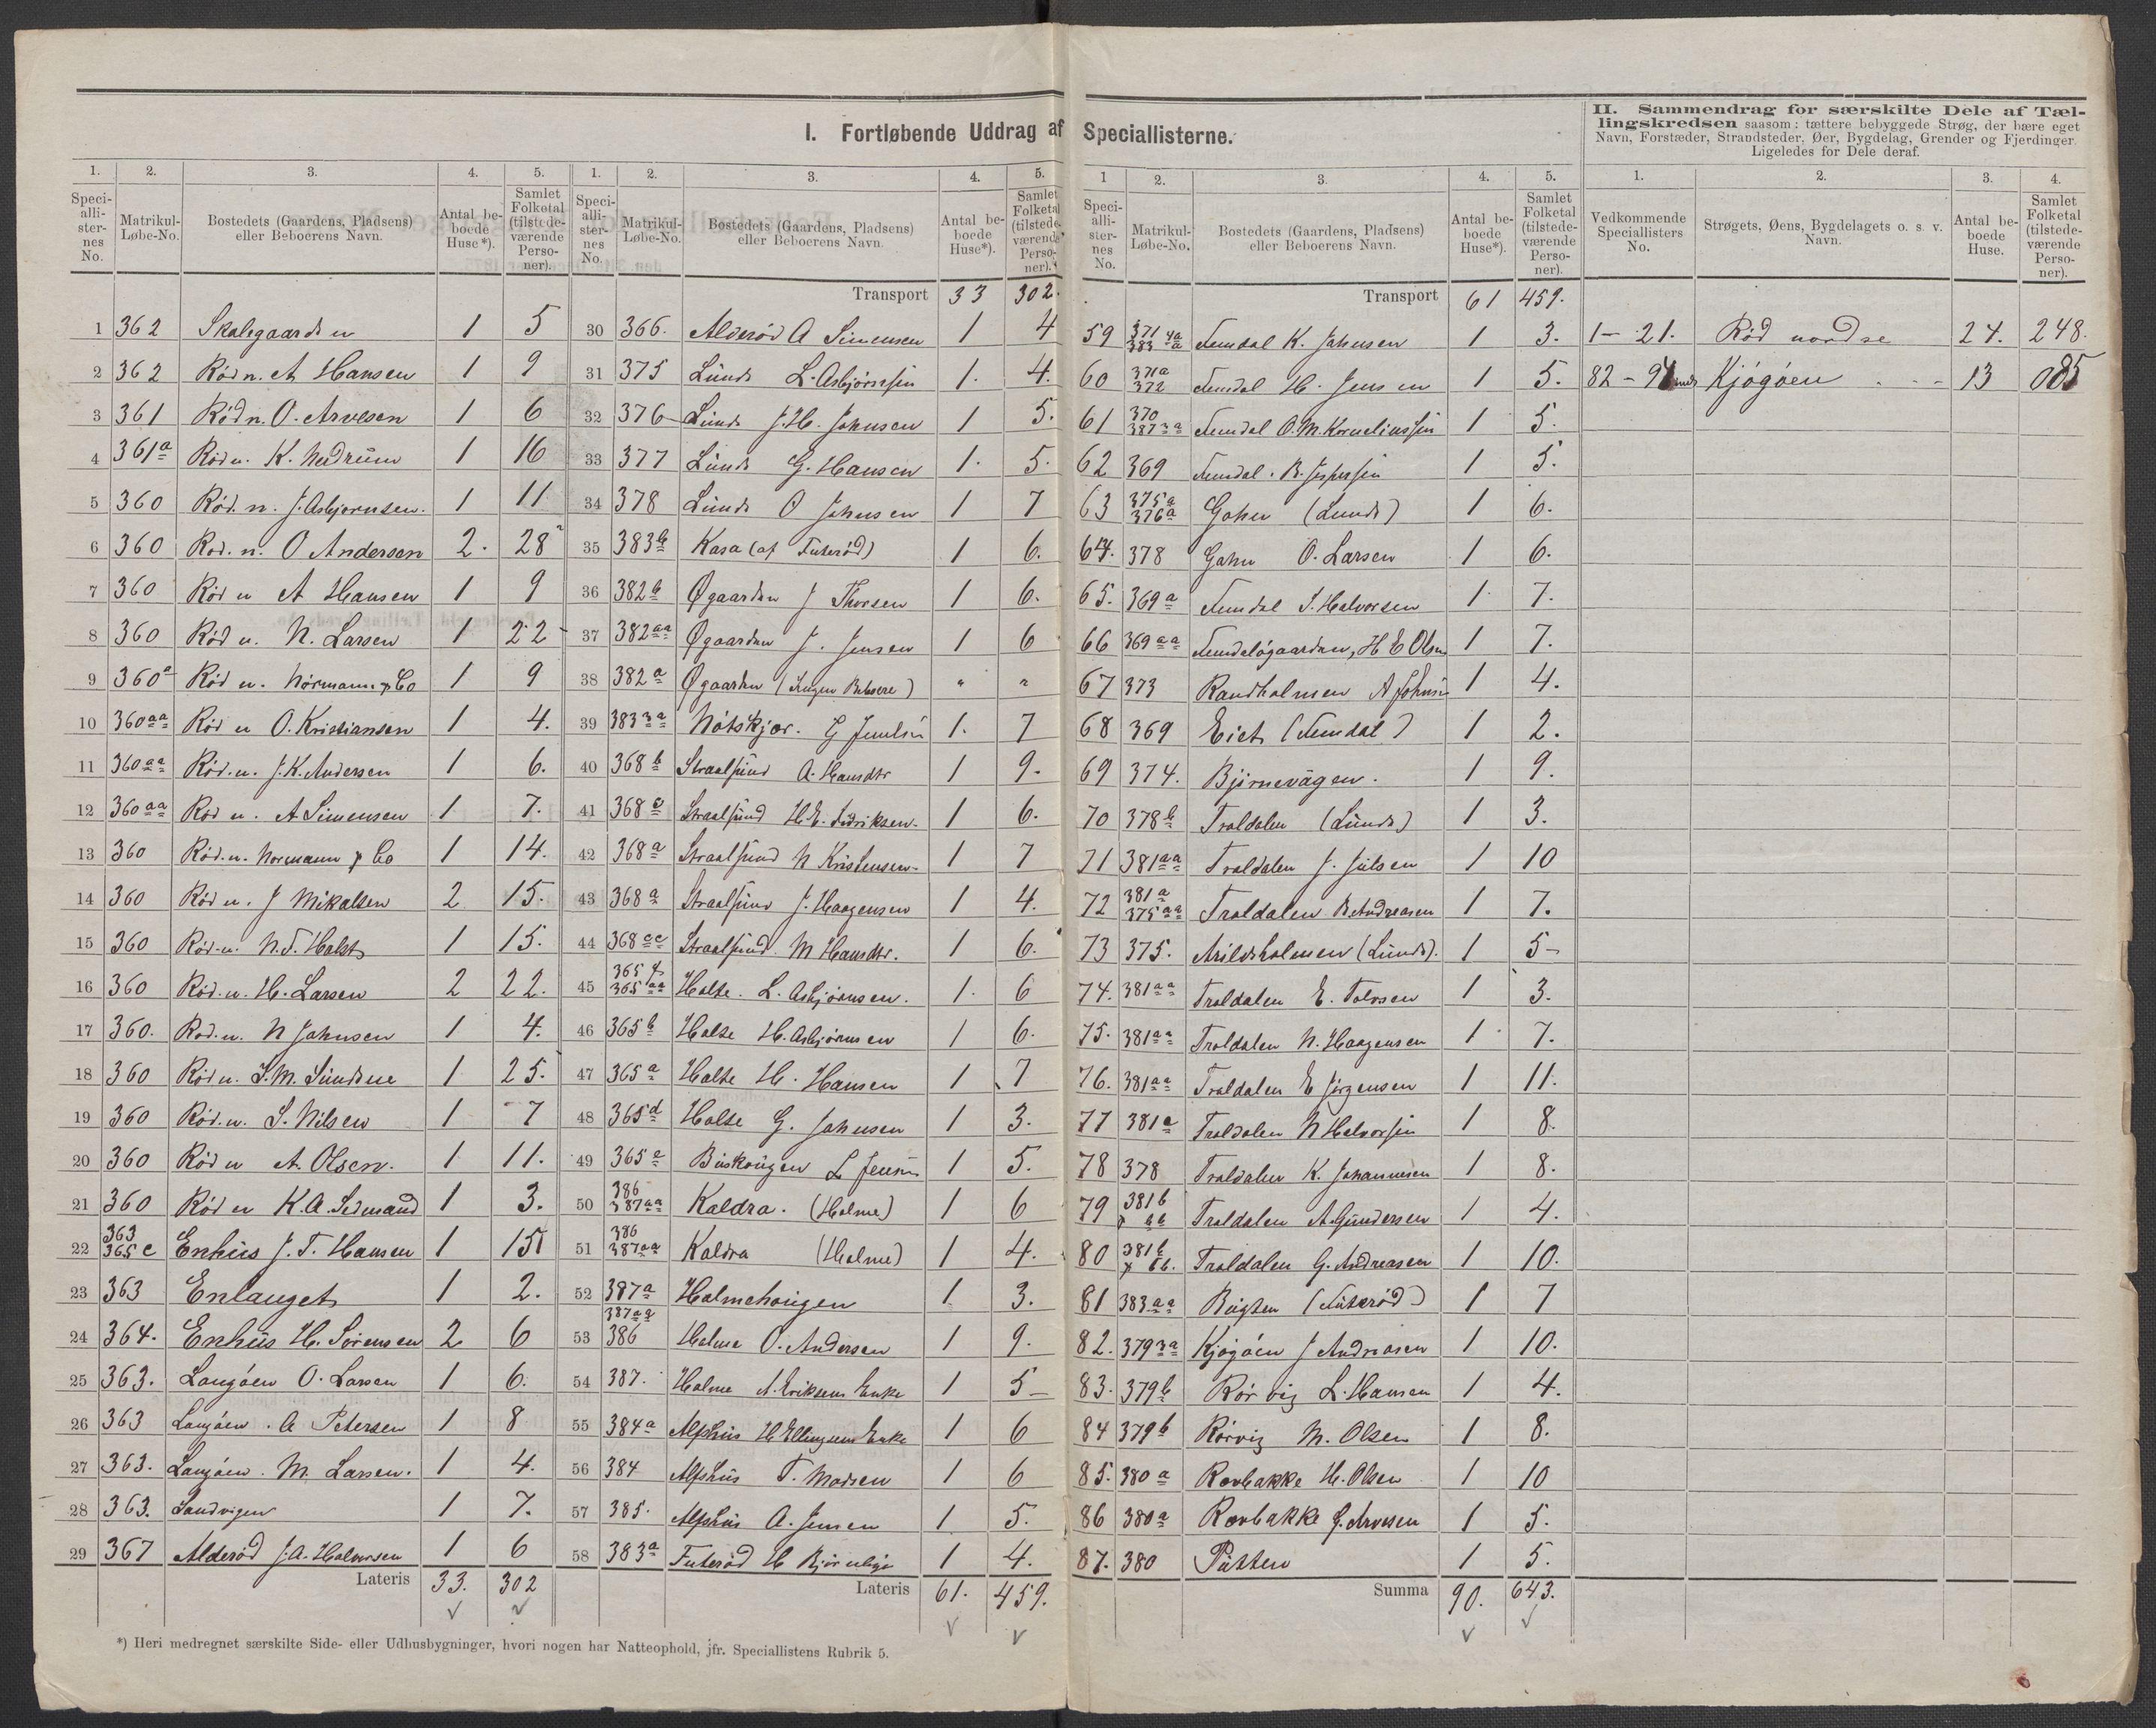 I. Fortløbende Uddrag af Speciallisterne.
II. Sammendrag for særskilte Dele af Tællingskredsen saasom: tættere bebyggede Strøg, der bære eget Navn, Forstæder, Strandsteder, Øer, Bygdelag, Grender og Fjerdinger. Ligeledes for Dele deraf.
1. 2. 3. 4. 5.
Speciallisternes No. Matrikul-Løbe-No. Bostedets (Gaardens, Pladsens) eller Beboerens Navn. Antal beboede Huse*). Samlet Folketal (tilstedeværende Personer).
1 362 Skalegaarden 1 5
2 362 Rød n. A Hansen 1 9
3 361 Rød n. O. Arvesen 1 6
4 361a Rød n. K. Nedrum 1 16
5 360 Rød. n. J. Asbjornsen. 1 11
6 360 Rød. n. O Andersen 2. 28
7 360 Rød n A Hansen 1 9
8 360 Rød n. N. Larsen 1 22
9 360a Rød n. Normann & Co 1 9
10 360aa Rød n O. Kristiansen 1 4.
11 360aa Rød. n. J. K. Andersen 1 6.
12 360aa Rød n. A Simensen 1 7.
13 360 Rød. n. Normann & Co 1 14.
14 360 Rød n. J Mikalsen 2 15.
15 360 Rød. n. N. T. Holst 1 15.
16 360 Rød. n. H. Larsen 2 22.
17 360. Rød. n. N Johnsen 1 4.
18 360 Rød n. S. M. Sundene 1 25.
19 360 Rød. n. S. Nilsen 1 7
20 360 Rød n A. Olsen. 1 11.
21 360 Rød n K. A. Sidmand 1 3.
22 363 365c Enhus J. T. Hansen 1 15
23 363 Enlauget 1 2.
24 364. Enhus H. Sørensen 2 6
25 363. Langøen O. Larsen 1 6.
26 363 Langøen. A Petersen 1 8
27 363. Langøen. M. Larsen. 1 4.
28 363. Sandvigen 1 7.
29 367 Alderød J. A. Halvorsen 1 6
Lateris 33. 302
*) Heri medregnet særskilte Side- eller Udhusbygninger, hvori nogen har Natteophold, jfr. Speciallistens Rubrik 5.
1. 2. 3. 4. 5.
Speciallisternes No. Matrikul-Løbe-No. Bostedets (Gaardens, Pladsens) eller Beboerens Navn. Antal beboede Huse*). Samlet Folketal (tilstedeværende Personer).
Transport 33 302.
30 366. Alderød A Simensen 1 4
31 375 Lunde L. Asbjørnssen 1. 4.
32 376 Lunde J. H. Johnsen 1 5.
33 377 Lunde G. Hansen 1. 5.
34 378 Lunde O Johnsen 1 7
35 383b Kasa (af Futerød) 1 6.
36 382b Øgaarden J Thorsen 1 6.
37 382aa Øgaarden J. Jensen 1 6
38 382a Øgaarden (Ingen Beboere) " "
39 383 3a Nøtskjær. G 1. 7
40 368b Straalsund A. Hansdtr 1 9.
41 368c Straalsund H. E. Didriksen. 1 6.
42 368a Straalsund N Kristensen. 1 7
43 368a Straalsund J. Haagensen 1 4.
44 368ac Straalsund M Hansdtr. 1 6.
45 365f 365aa Holte. L. Asbjørnsen. 1. 6
46 365b Holte H. Asbjørnsen 1 6.
47 365a Holte H. Hansen 1 7
48 365d Holte G. Johnsen 1 3.
49 365e Buskougen L Jensen 1 5.
50 386 387aa Kaldra. (Holme) 1 6
51 386 387aa Kaldra (Holme) 1 4.
52 387a Holmehougen 1 3.
53 387aa 386 Holme O. Andersen 1 9.
54 387. Holme A. Eriksens Enke 1 5
55 384a Alfshus H Ellingsens Enke 1 6
56 384 Alfshus T. Madsen 1 6
57 385. Alfshus A. Jensen 1 5.
58 383a Futerød H 1 4.
Lateris 61. 459.
1 2. 3. 4. 5.
Speciallisternes No. Matrikul-Løbe-No. Bostedets (Gaardens, Pladsens) eller Beboerens Navn. Antal beboede Huse*). Samlet Folketal (tilstedeværende Personer).
Transport 61 459.
59 371 4a 383 a Femdal K. Johnsen 1 3.
60 371a 372 Femdal H. Jensen 1 5.
61 370 387 3a Femdal O. M. Korneliussen 1 5.
62 369 Femdal. B. Jespersen 1 5.
63 375a 376a Gohn (Lunde) 1 6.
64. 378 Gohn O. Larsen 1 6.
65. 369a Femdal S. Halvorsen 1 7.
66 369aa Femdaløgaarden, H E Olsen 1 7.
67 373 Randholmen A Johnsen 1 4.
68 369 Eiet (Femdal) 1 2.
69 374. Bjørnevågen. 1 9.
70 378b Troldalen (Lunde) 1 3.
71 381aa Troldalen J. Julsen 1 10
72 381a 375aa Troldalen B. Andreasen 1 7.
73 375. Arildsholmen (Lunde). 1 5
74. 381aa Troldalen E. Tolvsen 1 3.
75. 381aa Troldalen N. Haagensen 1 7.
76. 381aa Troldalen E Jørgensen 1 11.
77 381a Troldalen N Halvorsen 1 8.
78 378 Troldalen K. Johannesen 1 8.
79 381b & bb Troldalen A. Gundersen 1 4.
80 381b & bb. Troldalen G. Andreasen 1 10.
81 383aa Bugten (Futerød) 1 7
82. 379 3a Kjøgøen J Andreasen 1 10.
83. 379b Rørvig L. Hansen 1 4.
84 379b Rørvig M. Olsen 1 8.
85. 380a Rovbakke H. Olsen 1 10
86 380a Rovbakke J. Arvesen 1 5.
87. 380 Putten 1 5.
Summa 90. 643.
1. 2. 3. 4.
Vedkommende Speciallisters No. Strøgets, Øens, Bygdelagets o. s. v. Navn. Antal beboede Huse. Samlet Folketal (tilstedeværende Personer).
1 – 21. Rød nordre 24. 248.
82 – 94 Kjøgøen 13 085